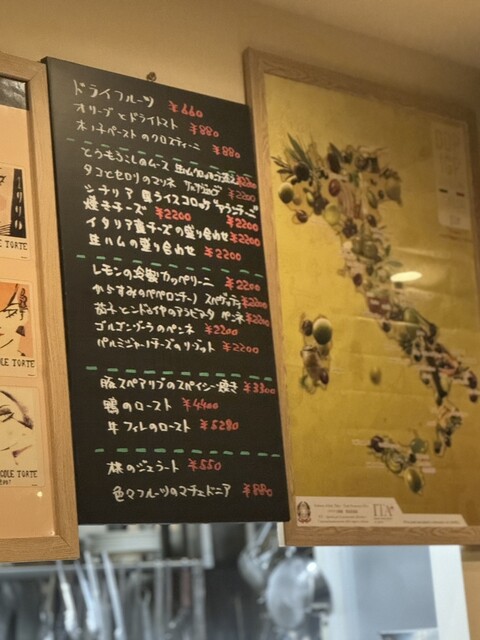 ドライフルーツ ¥660
オリーブとドライトマト ¥880
のクロスティーニ ¥880
とうもろこしのムース 生ハム
タコとセロリのマリネ ¥2200
シチリア ライスコロッケ"アランチーニ"
焼きチーズ ¥2200 ¥2200
イタリア産チーズの盛り合わせ ¥2200
生ハムの盛り合わせ ¥2200
レモンの冷製カッペリーニ ¥2200
からすみのペペロンチーノ スパゲッティ ¥2200
茄子と のアラビアータ ペンネ ¥2200
ゴルゴンゾーラのペンネ ¥2200
パルミジャーノチーズのリゾット ¥2200
豚スペアリブのスパイシー焼き ¥3300
鴨のロースト ¥4400
牛フィレのロースト ¥5280
桃のジェラート ¥550
色々フルーツのマチェドニア ¥880
TORTE
COLE TORTE
COLE TORTE
ITA